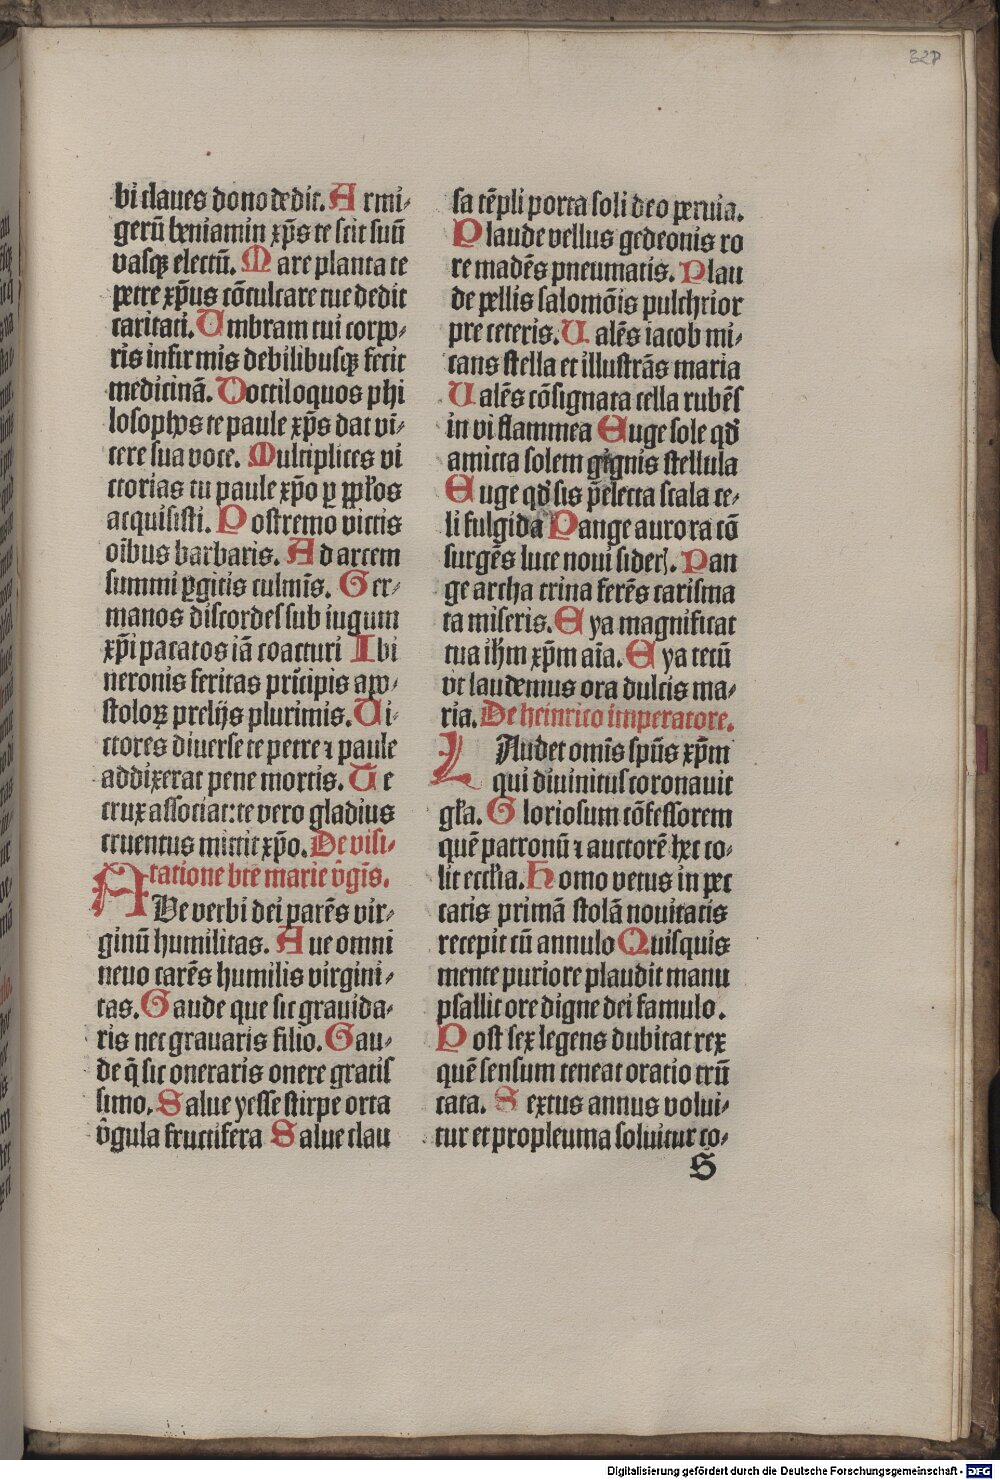 327
bi claues dono dedit. Armi-
gerū beniamin xp̄s te scit suū
vasqꝫ electū. Mare planta te
petre xp̄us cōculcare tue dedit
caritati. Umbram tui corpo-
ris infirmis debilibusqꝫ fecit
medicinā. Doctiloquos phi
losophos te paule xp̄s dat vi-
cere sua voce. Multiplices vi
ctorias tu paule xp̄o ꝑ
acquisisti. Postremo victis
oībus barbaris. Ad arcem
summi ꝑgitis culmīs. Ger-
manos discordes sub iugum
xp̄i pacatos iā coacturi Ibi
neronis feritas prīcipis apo-
stoloꝝ prelijs plurimis. Ui-
ctores diuerse te petre ⁊ paule
addixerat pene mortis. Te
crux associat: te vero gladius
cruentus mittit xp̄o. De visi-
tatione bte marie v̄gīs.
Ave verbi dei parēs vir-
ginū humilitas. Aue omni
neuo carēs humilis virgini-
tas. Gaude que sic grauida-
ris nec grauaris filio. Gau-
de q̄ sic oneraris onere gratis
simo. Salue yesse stirpe orta
v̄gula fructifera Salue clau
sa tēpli porta soli deo peruia.
Plaude vellus gedeonis ro
re madēs pneumatis. Plau
de pellis salomōis pulchrior
pre ceteris. Ualēs iacob mi-
cans stella et illustrās maria
Ualēs cōsignata cella rubēs
in vi flammea Euge sole qd̄
amicta solem gignis stellula
Euge qd̄ sis p̄electa scala ce-
li fulgida Pange aurora cō
surgēs luce noui siderꝭ. Pan
ge archa trina ferēs carisma
ta miseris. Eya magnificat
tua ihm̄ xp̄m aīa. Eya tecū
vt laudemus ora dulcis ma-
ria. De heinrico imperatore.
LAudet omīs spūs xp̄m
qui diuinitus coronauit
gła. Gloriosum cōfessorem
quē patronū ⁊ auctorē hec co-
lit eccl̄ia. Homo vetus in pec
catis primā stolā nouitatis
recepit cū annulo Quisquis
mente puriore plaudit manu
psallit ore digne dei famulo.
Post sex legens dubitat rex
quē sensum teneat oratio trū
cata. Sextus annus volui-
tur et propleuma soluitur co-
S
Digitalisierung gefördert durch die Deutsche Forschungsgemeinschaft - DFG